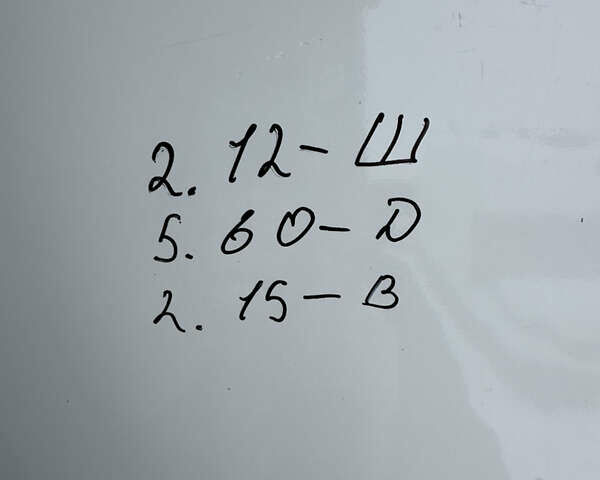 2. 12 - Ш
5. 60 - D
2. 15 - В